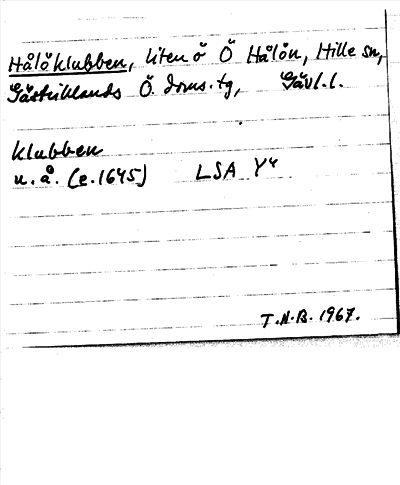 Hålöklubben, liten ö Ö Hålön, Hille sn,
Gästriklands Ö. doms.tg, Gävl.l.
Klubben
u. å. (e. 1645) LSA Y4
T.N.B. 1967.